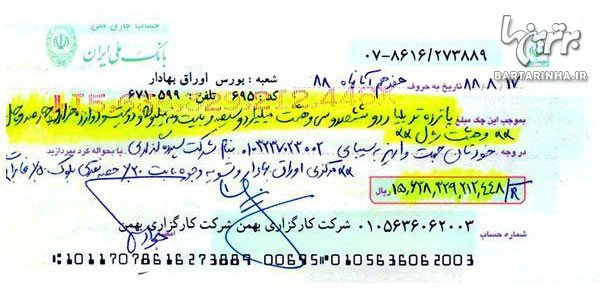 برترینها
BARTARINHA.IR
حساب جاری
بانک ملی ایران
۰۷-۸۶۱۶/۲۷۳۸۸۹
۸۸/۸/۱۷ تاریخ به حروف هفدهم آبانماه ۸۸ شعبه : بورس اوراق بهادار
کد : ۶۹۵ تلفن : ۶۷۱۰۵۹۹
بموجب این چک مبلغ پانزده تریلیارد و ششصد و سی و هشت میلیارد و سیصد و بیست و نه میلیون و دویست و دوازده هزار و چهارصد و چهل
و هشت ریال
در وجه خودتان جهت واریز به سیبای بنام شرکت سپرده گذاری یا حواله کرد بپردازید
مرکزی اوراق بهادار و تسویه وجوه بابت ۲۰٪ حصه نقدی بلوک ۵۰٪
ریال
شماره حساب ۰۱۰۵۶۳۶۰۶۲۰۰۳ شرکت کارگزاری بهمن شرکت کارگزاری بهمن
10117078616273889 00695 0105636062003